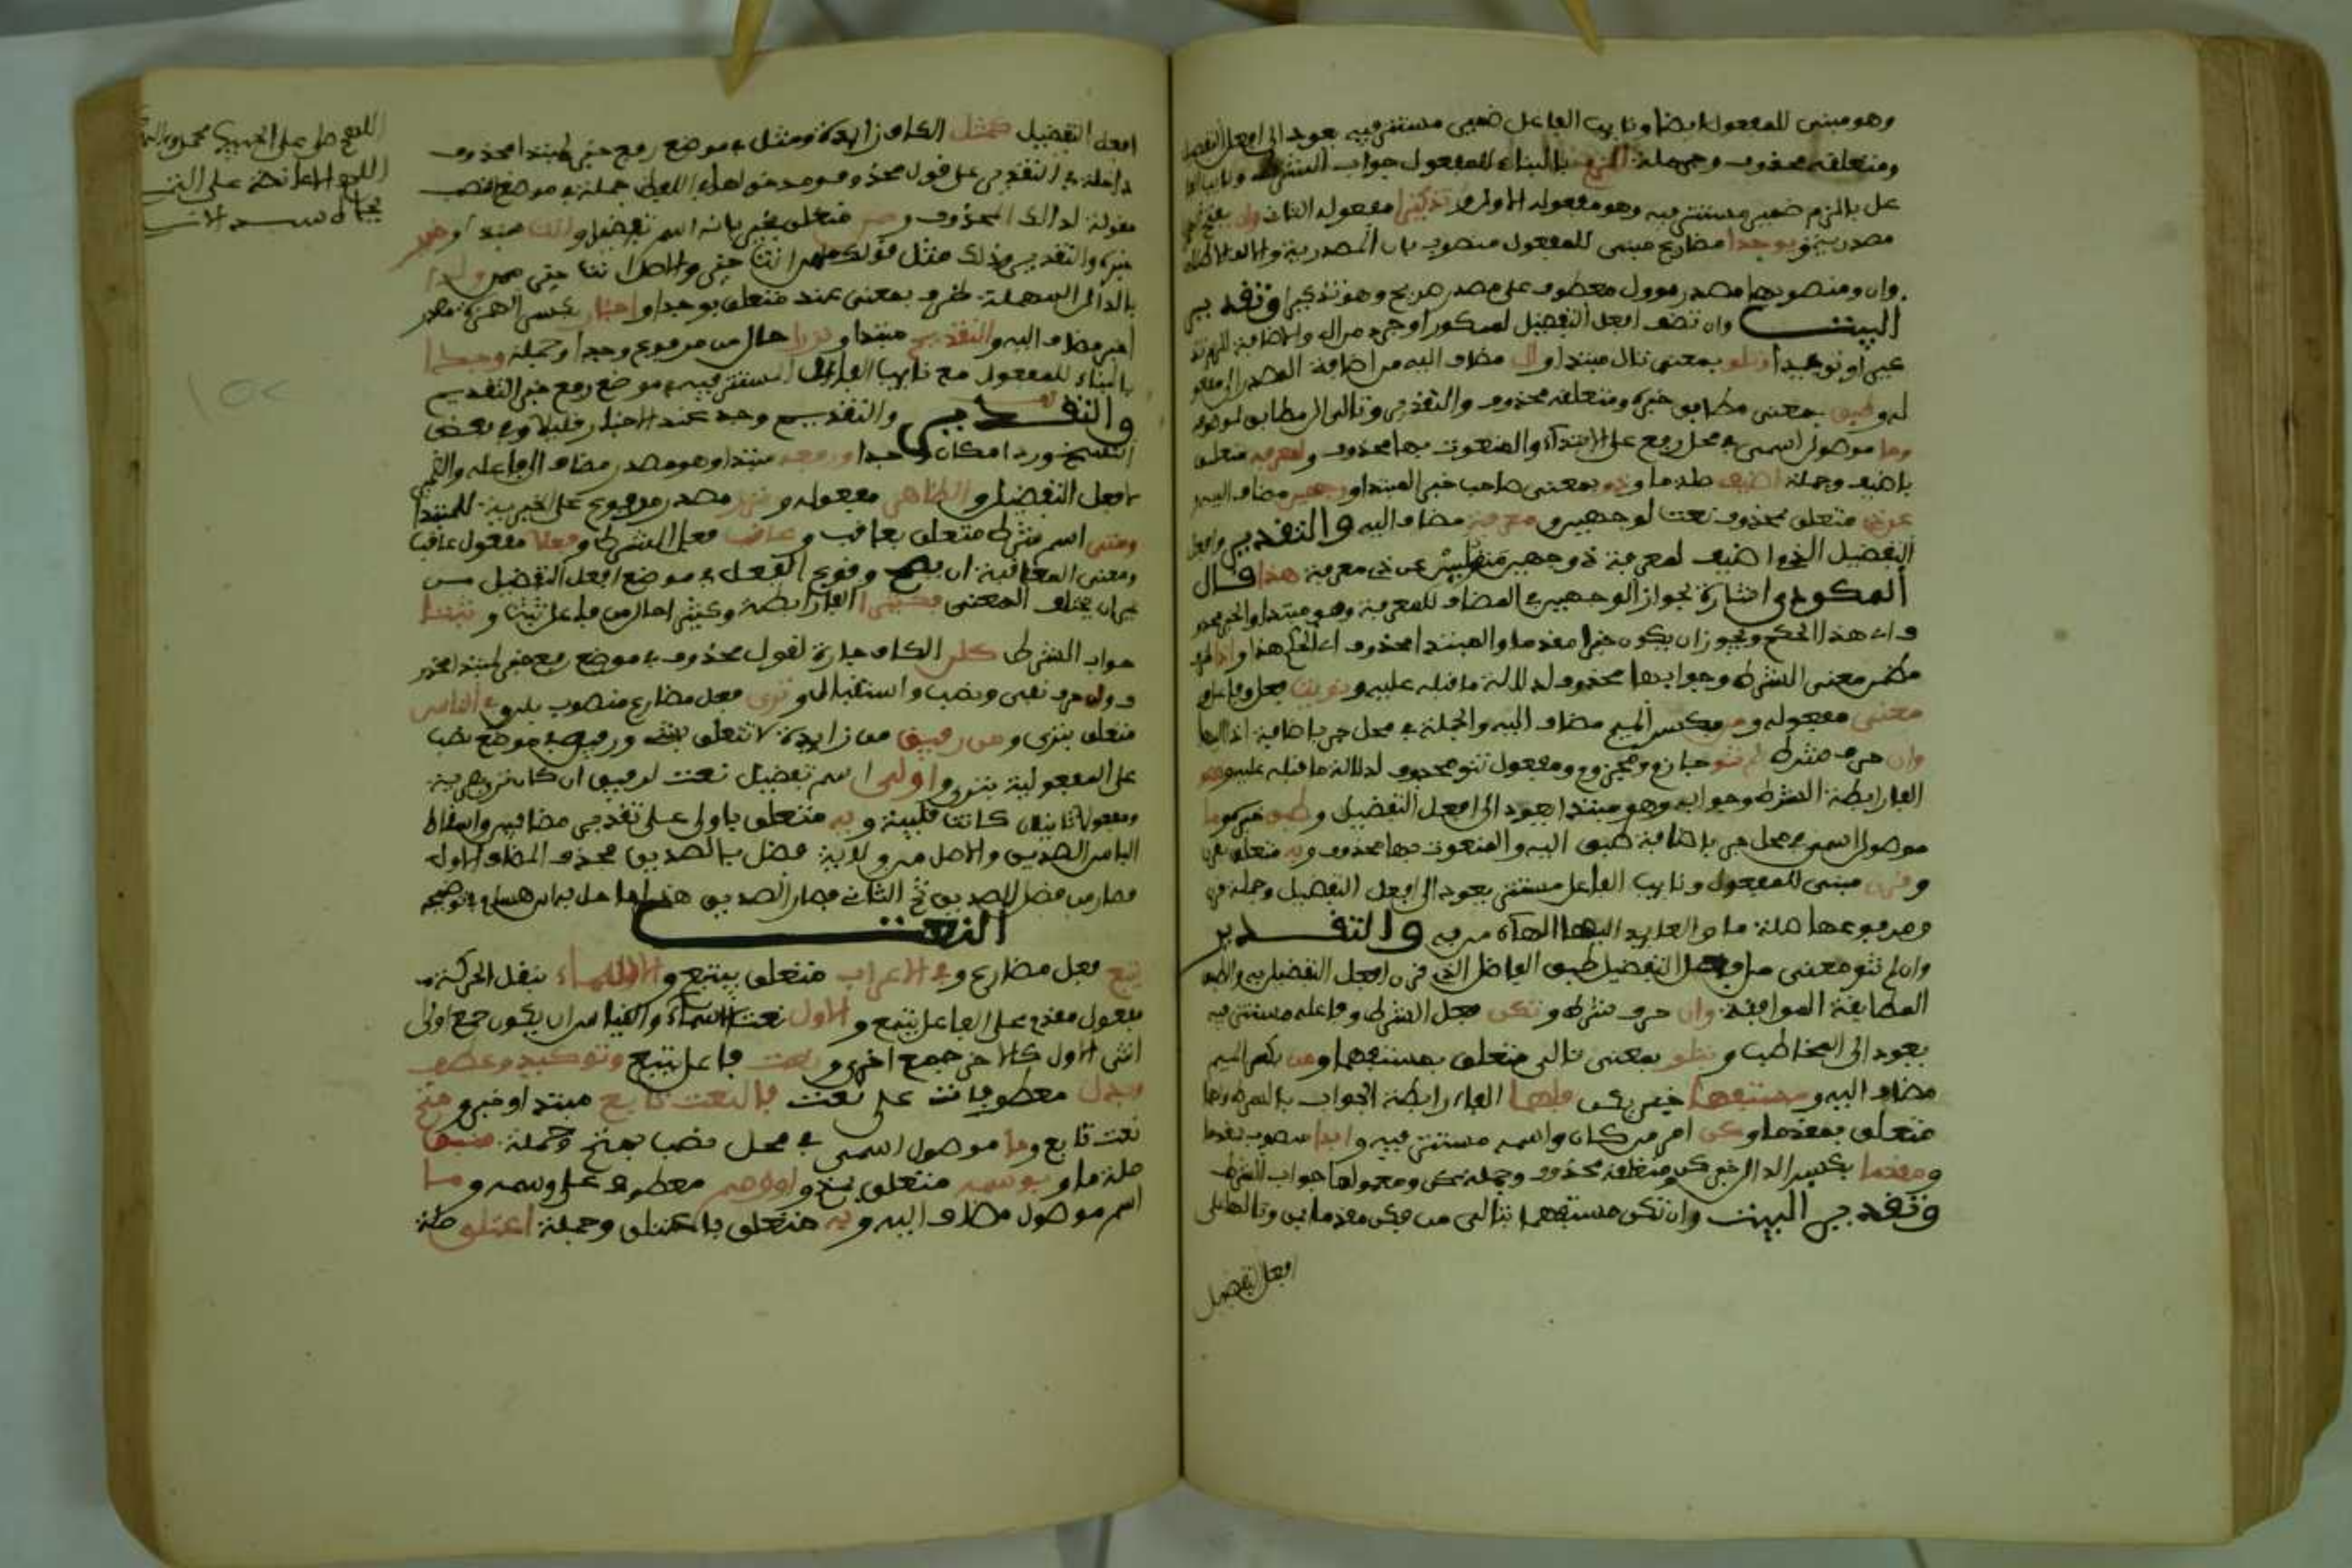 وهو مبني للمفعول ايضا ونايب الفاعل ضمير مستتر فيه يعود الى افعل التفضيل
ومتعلقه محذوف وجملة الزم بالبناء للمفعول جواب الشرط ونايب الفا
عل بالزم ضمير مستتر فيه وهو مفعوله الاول وتذكيرا مفعوله الثاني وان بفتح
مصدرية ويوحدا مضارع مبني للمفعول منصوب بان المصدرية والالف للاطلاق
وان ومنصوبها مصدر موول معطوف على مصدر صريح وهو تذكيرا وتقدير
البيت وان تضف افعل التفضيل لمنكور او جرد من ال والاضافة الزم تذ
كيرا وتوحيدا وتلو بمعنى تال مبتدا وال مضاف اليه من اضافة المصدر الى مفعو
له وطبق بمعنى مطابق خبره ومتعلقه محذوف والتقدير وتالي ال مطابق لموصوفه
وما موصول اسمي في محل رفع على الابتداء والمنعوت بها محذوف ولمعرفه متعلق
باضيف وجملة اضيف صلة ما وذو بمعنى صاحب خبر المبتدا ووجهين مضاف اليه
عن ذي متعلق بمحذوف نعت لوجهين ومعرفة مضاف اليه والتقدير وافعل
التفضيل الذي اضيف لمعرفة ذو وجهين منقلين عن ذي معرفة هذا قال
المكودي اشارة لجواز الوجهين في المضاف للمعرفة وهو مبتدا والخبر محذو
ف اي هذا الحكم ويجوز ان يكون خبرا مقدما والمبتدا محذوف اي الحكم هذا واذا ظرف
مضمن معنى الشرط وجوابها محذوف لدلالة ما قبله عليه ونويت فعل وفاعل
معنى مفعوله ومن بكسر الميم مضاف اليه والجملة في محل جر باضافة اذا اليها
وان حرف شرط لم تنو جازم ومجزوم ومفعول تنو محذوف لدلالة ما قبله عليه وهو
الفا رابطة الشرط وجوابه وهو مبتدا يعود الى افعل التفضيل وطبق خبره وما
موصول اسمي في محل جر باضافة طبق اليه والمنعوت بها محذوف وبه متعلق بقرن
وقرن مبني للمفعول ونايب الفاعل مستتر يعود الى افعل التفضيل وجملة قرن
ومرفوعها صلة ما والعايد اليها الهاء من به والتقدير
وان لم تنو معنى من افعل التفضيل طبق الفاضل الذي قرن افعل التفضيل به والطبق
المطابقة الموافقة وان حرف شرط وتكن فعل الشرط وفاعله مستتر فيه
يعود الى المخاطب وبتلو بمعنى تالي متعلق بمستفهما ومن بكسر الميم
مضاف اليه ومستفهما خبر تكن فلهما الفاء رابطة الجواب بالشرط ولهما
متعلق بمقدما وكن امر من كان واسمه مستتر فيه وابدا منصوب بمقدما
ومقدما بكسر الدال خبر كن ومتعلقه محذوف وجملة كن ومعمولها جواب الشرط
وتقدير البيت وان تكن مستفهما بتالي من فكن مقدما من وتاليها على
افعل التفضيل
افعل التفضيل كمثل الكاف زايدة ومثل في موضع رفع خبر لمبتدا محذوف
داخلة في التقدير على قول محذوف ومدخولها في اللفظ جملة في موضع نصب
مقولة لذالك المحذوف وممن متعلق بخير بانه اسم تفضيل وانت مبتدا وخير
خبره والتقدير وذلك مثل قولك ممن انت خير والاصل انت خير ممن ولدا
بالدال المهملة ظرف بمعنى عند متعلق بوجدا واخبار بكسر الهمزة مصدر
اخبر مضاف اليه والتقديم مبتدا ونزرا حال من مرفوع وجدا وجملة وجدا
بالبناء للمفعول مع نايب الفاعل المستتر فيه في موضع رفع خبر التقديم
والتقدير والتقديم وجد عند الاخبار قليلا وفي بعض
النسخ وردا مكان وجدا ورفعه مبتدا وهو مصدر مضاف الى فاعله والضمير
لافعل التفضيل والظاهر مفعوله ونزر مصدر مرفوع على الخبرية للمبتدا
ومتى اسم شرط متعلق بعاقب وعاقب فعل الشرط وفعلا مفعول عاقب
ومعنى المعاقبة ان يصح وقوع الفعل في موضع افعل التفضيل من
غير ان يختلف المعنى فكثيرا الفا رابطة وكثيرا حال من فاعل ثبتا وثبتا
جواب الشرط كلن الكاف جارة لقول محذوف في موضع رفع خبر لمبتدا محذو
ف ولن حرف نفي ونصب واستقبال وترى فعل مضارع منصوب بلن وفي الناس
متعلق بترى ومن رفيق من زايدة لا تتعلق بشيء ورفيق في موضع نصب
على المفعولية بترى واولى اسم تفضيل نعت لرفيق ان كانت بصرية
ومفعولا ثانيا ان كانت قلبية وبه متعلق باولى على تقدير مضافين واسقاط
البا من الصديق والاصل من ولاية فضل بالصديق فحذف المضاف الاول
فصار من فضل الصديق ثم الثاني فصار الصديق هذا ما حل به ابن هشام في توضيحه
النعت
يتبع فعل مضارع وفي الاعراب متعلق بيتبع والاسماء بنقل الحركة
مفعول مقدم على الفاعل بيتبع والاول نعت الاسماء والقياس ان يكون جمع اولى
انثى الاول كالاخر جمع اخرى ونعت فاعل يتبع وتوكيد وعطف
وبدل معطوفات على نعت فالنعت تابع مبتدا وخبر ومتم
نعت تابع وما موصول اسمي في محل نصب بمتم وجملة سبق
صلة ما وبوسمه متعلق بمتم او وسم معطوف على وسمه وما
اسم موصول مضاف اليه وبه متعلق باعتلق وجملة اعتلق صلة
اللهم صل على الحبيب محمد